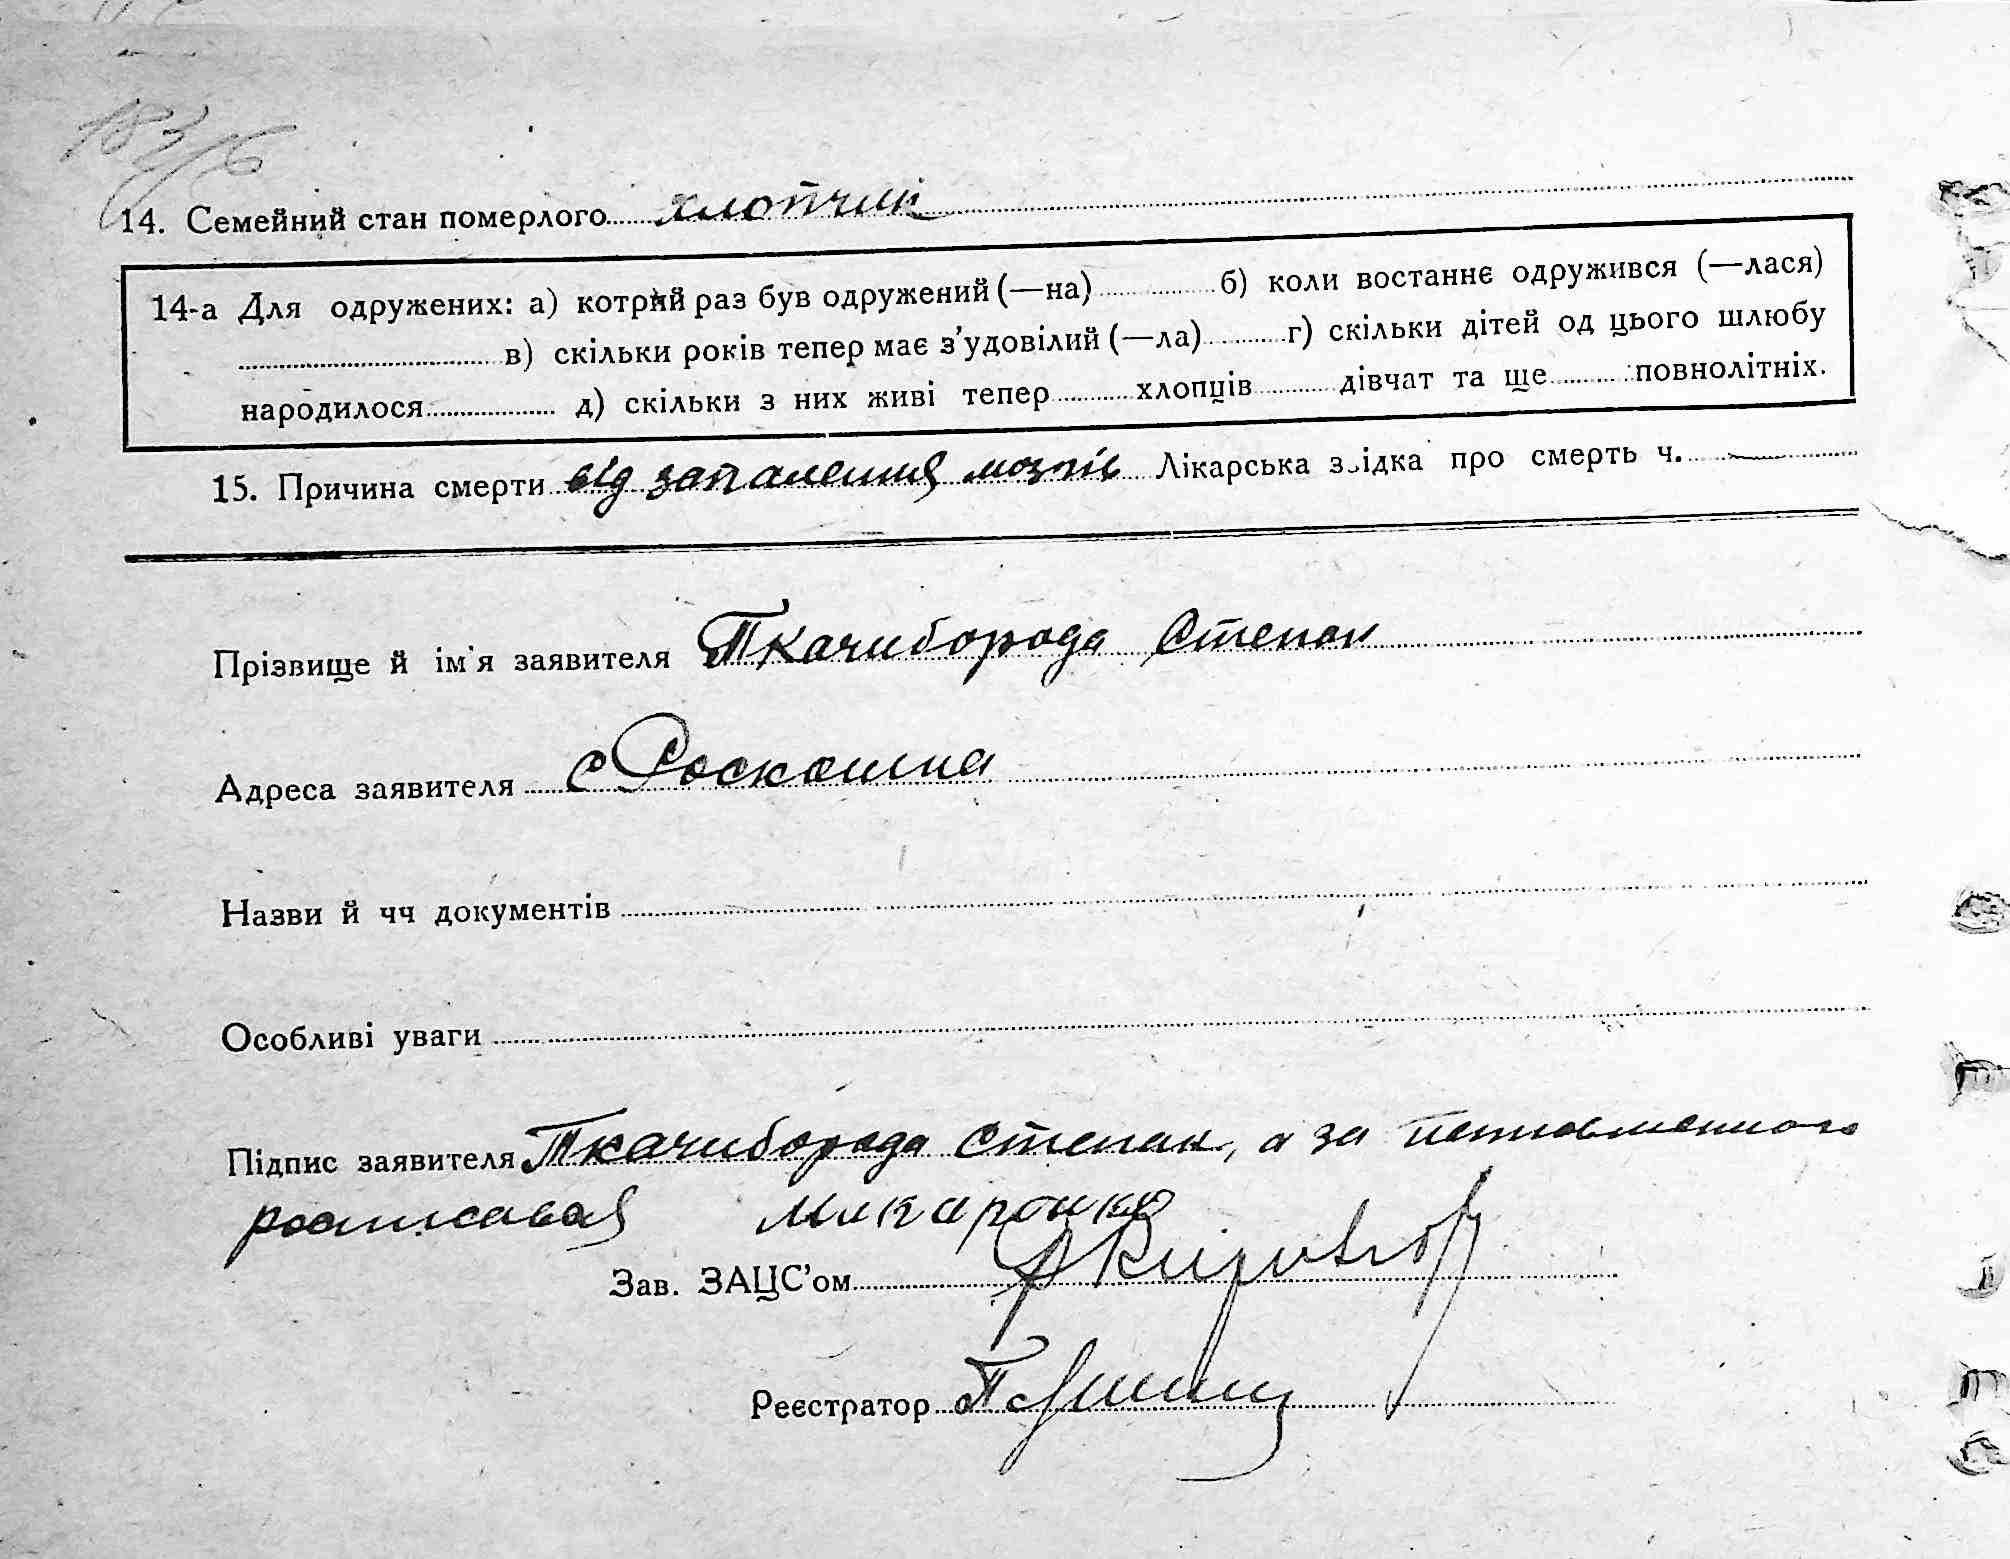 14. Семейний стан померлого хлопчик
14-а Для одружених: а) котрий раз був одружений (—на) б) коли востаннє одружився (—лася)
в) скільки років тепер має з’удовілий (—ла) г) скільки дітей од цього шлюбу
народилося д) скільки з них живі тепер хлопців дівчат та ще повнолітніх.
15. Причина смерти від запалення мозків Лікарська звідка про смерть ч. —
Прізвище й ім’я заявителя Ткачиборода Степан
Адреса заявителя с Роскошна
Назви й чч документів
Особливі уваги
Підпис заявителя Ткачиборода Степан, а за неписьменного
росписався
Зав. ЗАЦС’ом
Реєстратор